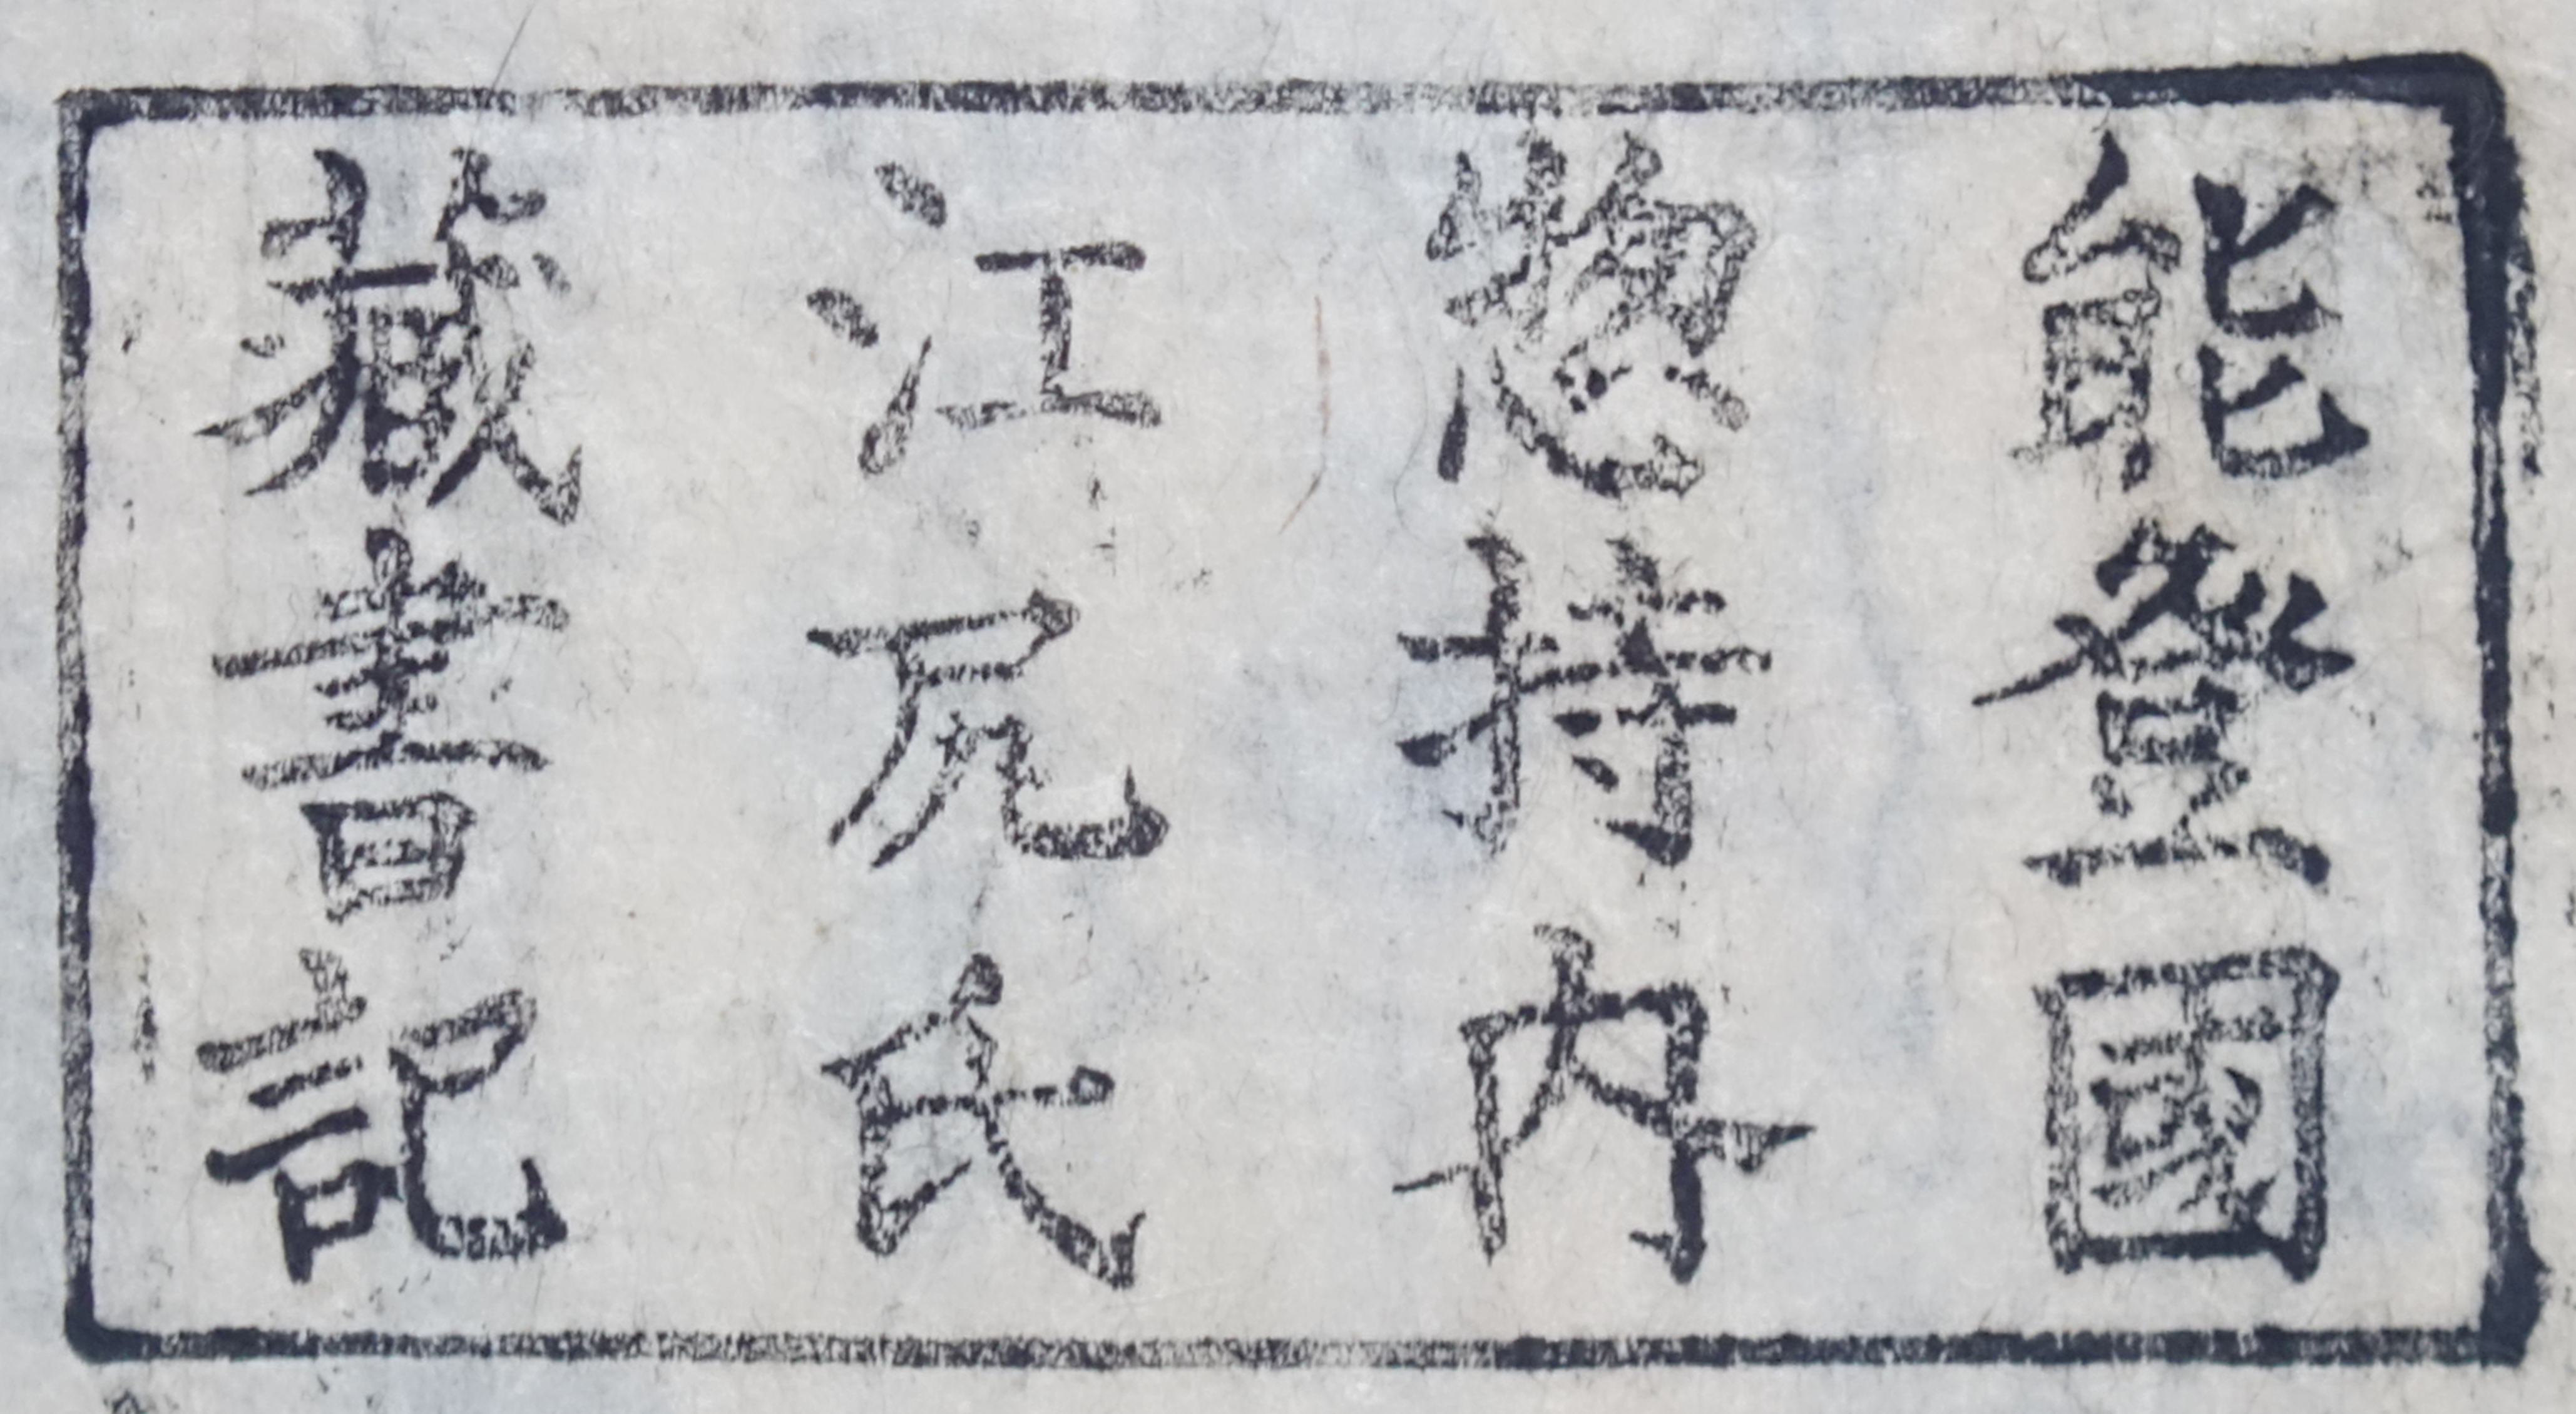 能登國
惣持内
江尻氏
藏書記